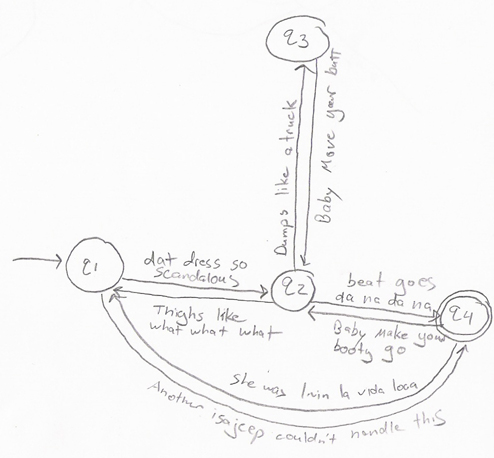 q3
Dumps like a truck
Baby Move your butt
q1
dat dress so
scandalous
q2
beat goes
da na da na
q4
Thighs like
what what what
Baby Make your
booty go
She was livin la vida loca
Another couldn't handle this